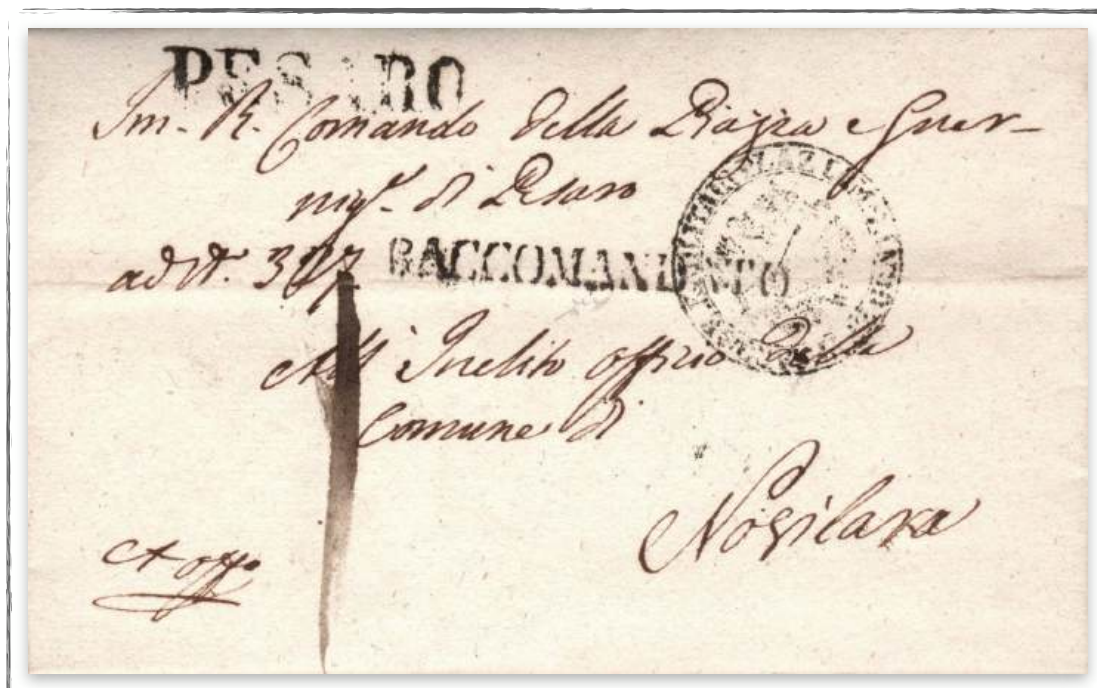 PESARO
Im. R. Comando della Piazza e Guar-
nigⁿ. di Pesaro
ad N. 307
RACCOMANDATO
All' Inclito offizio della
Comune di
Novilara